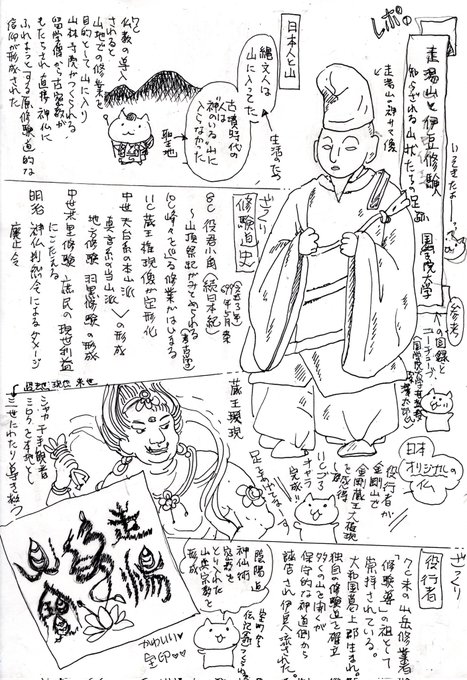 レポの
走湯山と伊豆修験
知られざる山伏たちの足跡
国学院大学
いってきたよー
走湯山の神サマで後
参考
この図録と
ユーチューブ
日本人と山
縄文人は
山に入ってた
生活のため
古墳時代の
人は
"神のいる"山に
入らなかった
聖地
7C
仏教の導入
されると
山地での修業を
目的として山に入り
山林寺院がつくられる
留学僧から古密教が
もたらされ直接神仏に
ふれようとする原修験道的な
信仰が形成された
ざっくり
修験道史
8C 役君小角(続日本紀)
〜山頂祭祀がみとめられる
(考古学)
10C 峰々を巡る修業がはじまる
11C 蔵王権現像が定形化
中世天台系の本山派
真言系の当山派
の形成
地方修験 羽黒修験の形成
中世末里修験 庶民の現世利益
にこたえる
明治 神仏判然令によるダメージ
廃止令
蔵王権現
過去 現世 来世
シャカ 千手観音
ミロクを本地とし
三世にわたり導き救う
日本
オリジナルの
仏
役行者が
金剛山で
金剛蔵王大権現
を感得
いという
キャラ
完成!!
ざっくり
役行者
7C末の山岳修業者
「修験道」の祖として
崇拝されている。
大和国葛上郡生まれ。
独自の修験道を確立
95の山を開くが
保守的な神道側から
讒言され伊豆へ流された
陰陽道
神仙術
密教を
とり入れた
山岳宗教を
形成
室町から
伝記が
される
かわいい♡♡
宝印